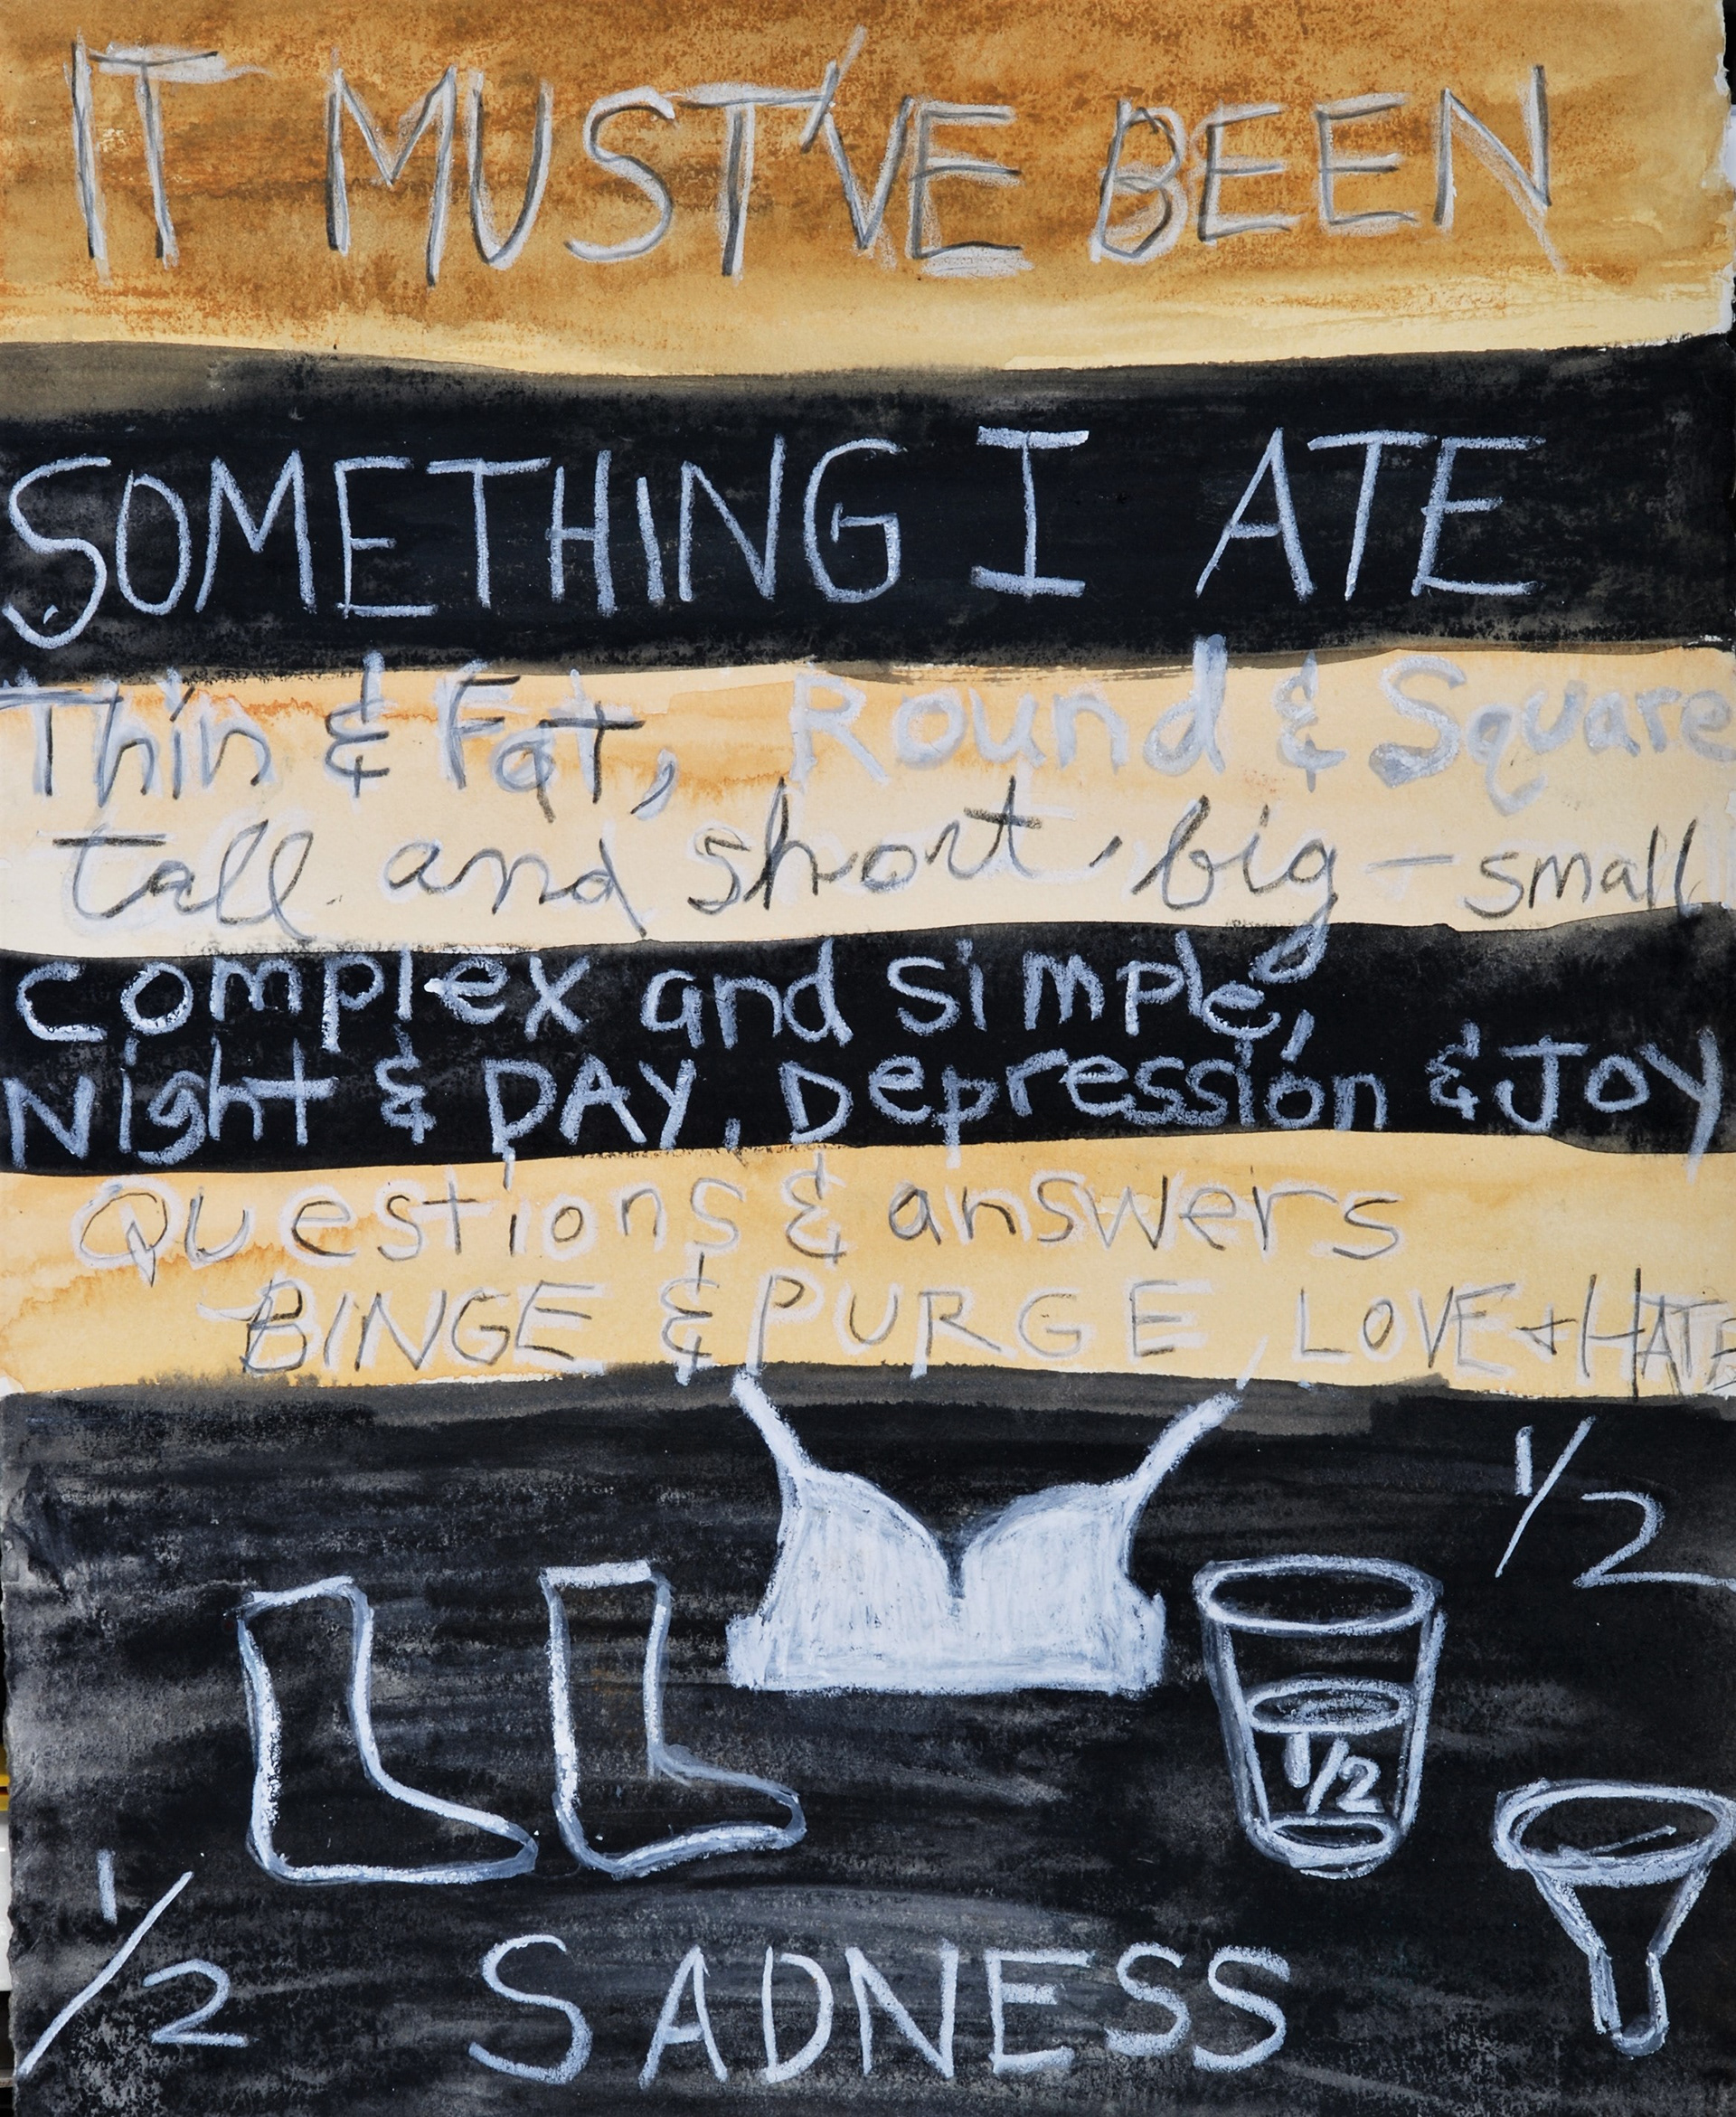 IT MUST'VE BEEN
SOMETHING I ATE
Thin & Fat, Round & Square
tall and short, big - small
complex and simple,
Night & DAY, Depression & JOY
Questions & answers
BINGE & PURGE, LOVE + HATE
1/2
1/2
1/2
SADNESS